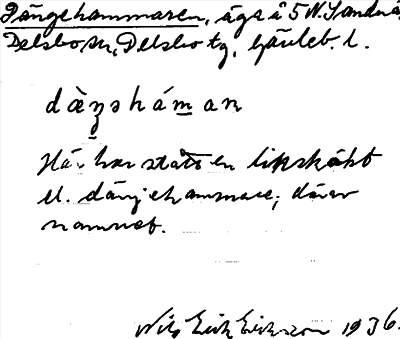 Dängehammaren, äga å 5 N. Sanna
Delsbo sn, Delsbo tg, Gävleb. l.
dæŋsháman
Här har stått en lipskäkt
el. dängehammare, därav
namnet.
Nils Erik Eriksson 1936.